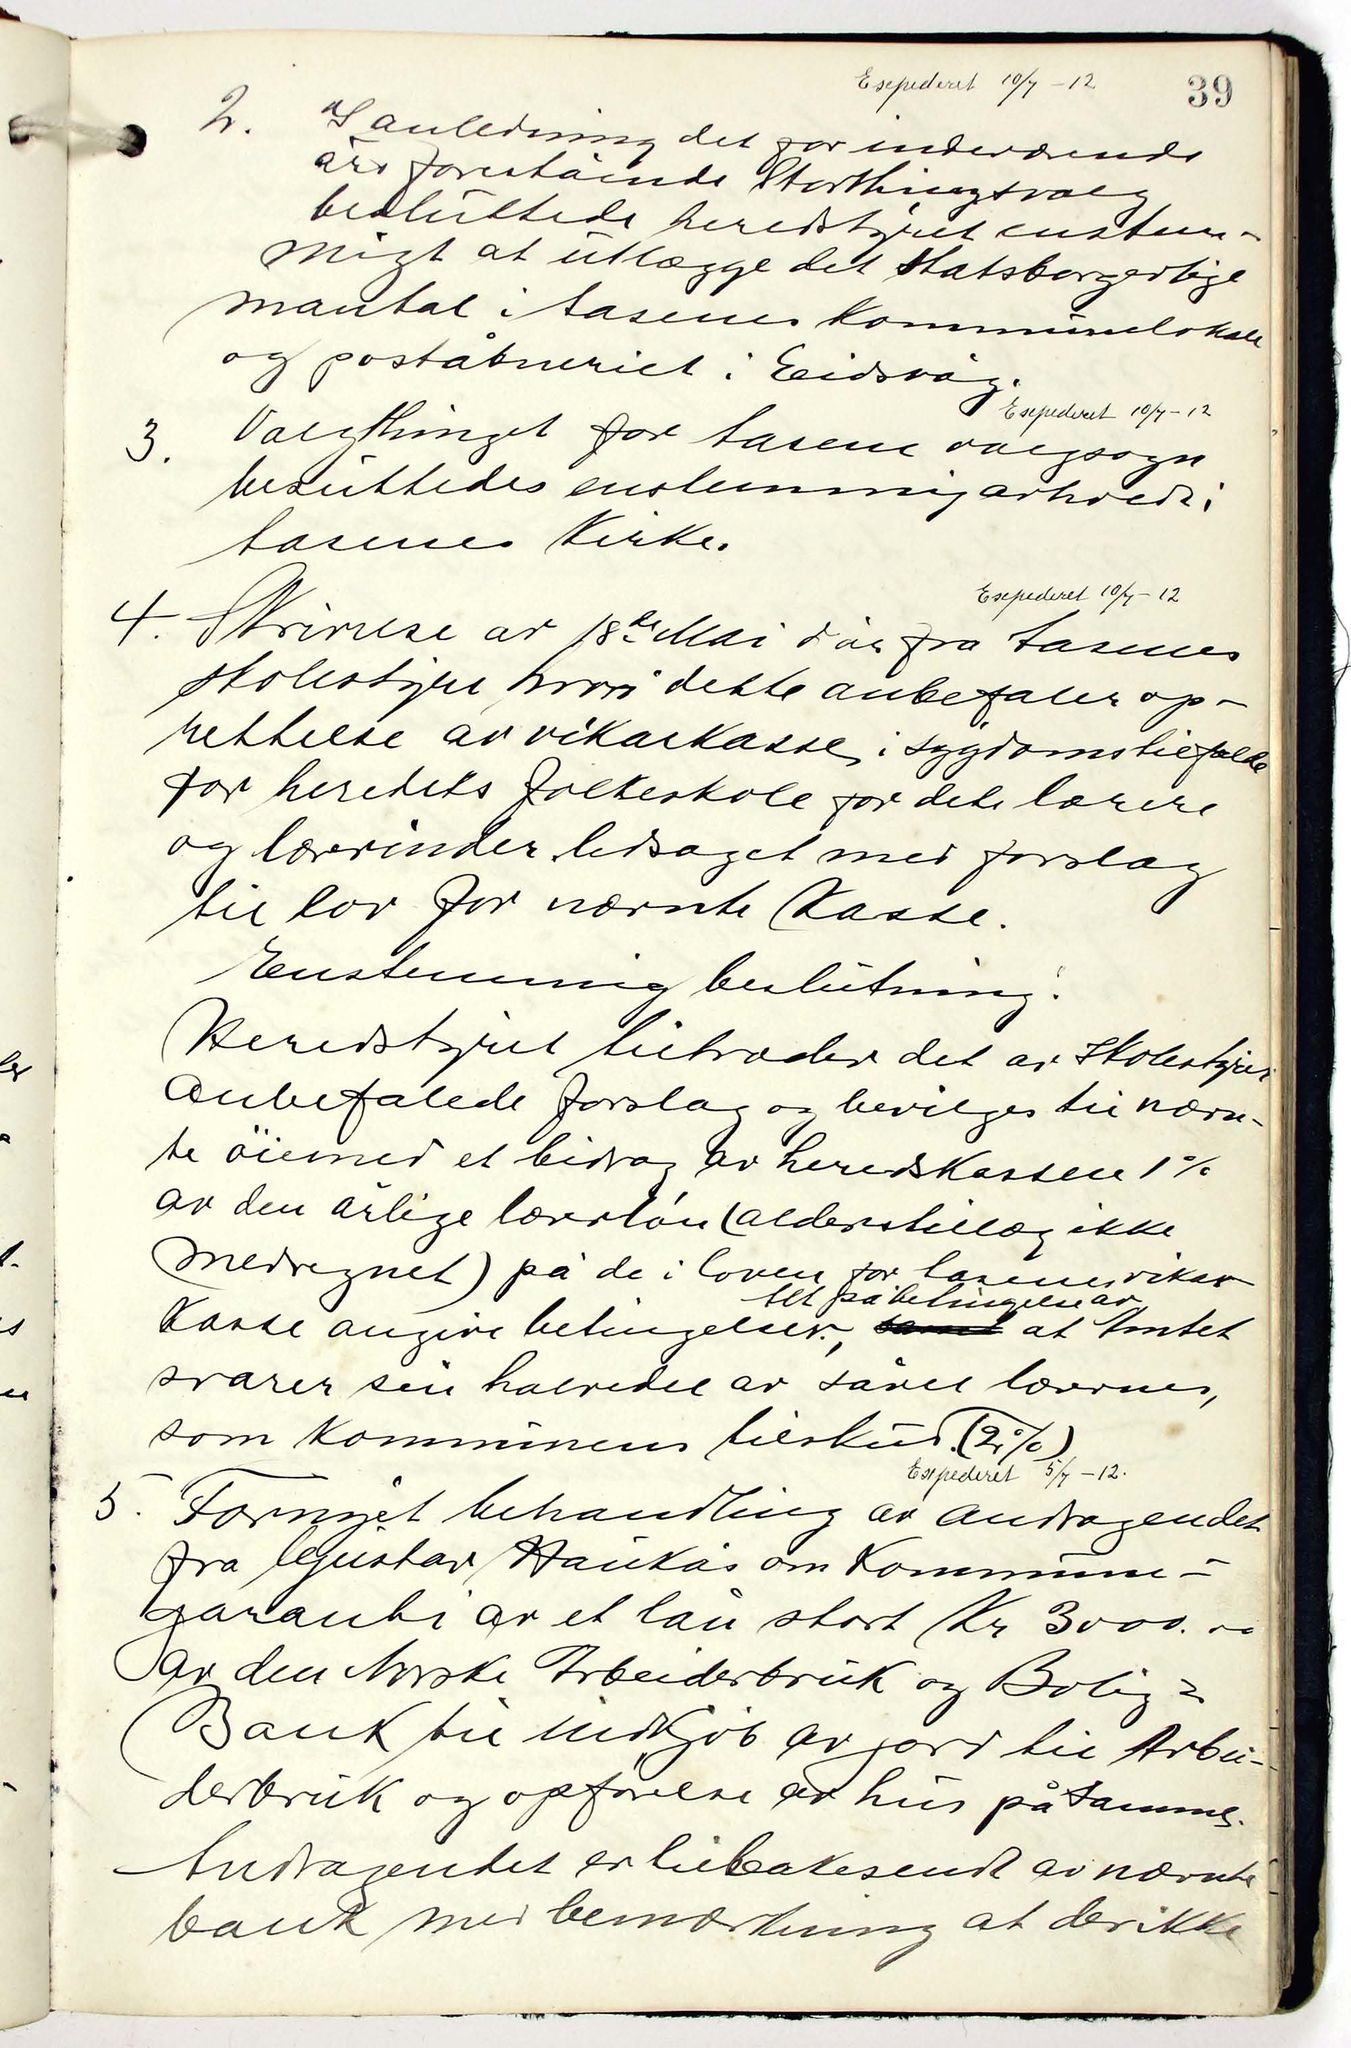 Expederet 10/7 - 12
39
2. I anledning det for indeværende
års forestående Storthingsvalg
besluttede heredstyret enstem-
migt at utlægge det Statsborgerlige
mantal i Aasenes Kommunelokale
og poståbneriet i Eidsvåg.
Expederet 10/7 - 12
3. Valgthinget for Aasene valgsogn
besluttedes enstemmig avholdt i
Aasenes Kirke.
Expederet 10/7 - 12
4. Skrivelse av 18de Mai d år fra Aasenes
skolestyre hvori dette anbefaler op-
rettelse av vikarkasse i sygdomstilfælde
for heredets folkeskole for dets lærere
og lærerinder ledsaget med forslag
til lov for nævnte Kasse.
Enstemmig beslutning:
Heredstyret tiltræder det av Skolestyret
anbefalede forslag og bevilges til nævn-
te øiemed et bidrag av heredskassen 1%
av den årlige lærerløn (alderstillæg ikke
medregnet) på de i loven for Aasenes vikar
alt på betingelse av
Kasse angivne betingelser, samt at Amtet
svarer sin halvedel av såvel lærernes,
som Kommunens tilskud. (2%)
Expederet 5/7 - 12.
5. Fornyet behandling av andragendet
fra Gustav Haukås om Kommune-
garanti av et lån stort Kr 3000.00
av den Norske Arbeiderbruk og Bolig=
Bank til indkjøb av jord til Arbei-
derbruk og opførelse av hus på samme.
Andragendet er tilbakesendt av nævnte
bank med bemærkning at der ikke